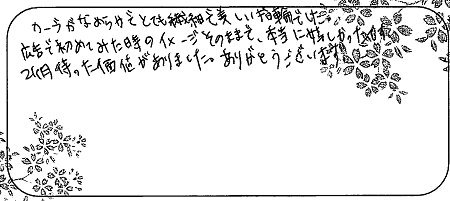 カーラがなめらかでとても繊細で美しい指輪でした。
広告で初めてみた時のイメージそのままで、本当に嬉しかったです。
2ヶ月待った価値がありました。ありがとうございます!